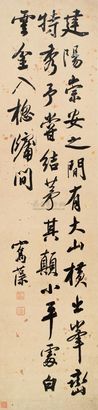 建陽崇安之間有大山橫出峯巒
特秀予嘗結茅其顛小平處白
雲坌入牕牖間
寯藻